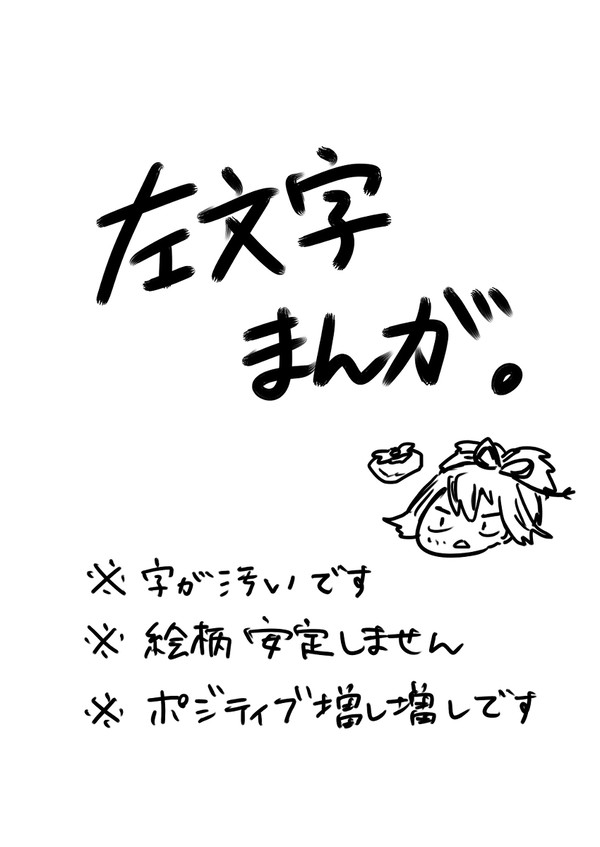 左文字
まんが。
※字が汚いです
※絵柄安定しません
※ポジティブ増し増しです